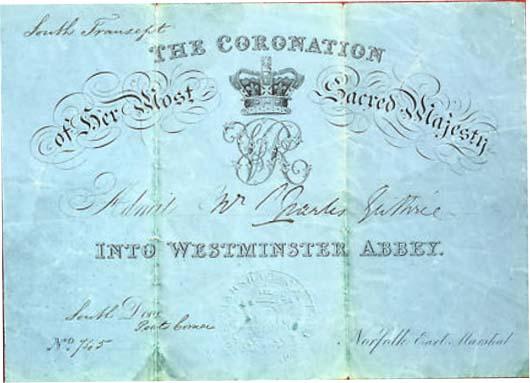 South Transept
THE CORONATION
of Her Most Sacred Majesty
VR
Admit Mr Charles Guthrie
INTO WESTMINSTER ABBEY.
South Door
Poets Corner
No. 745
Norfolk Earl Marshal